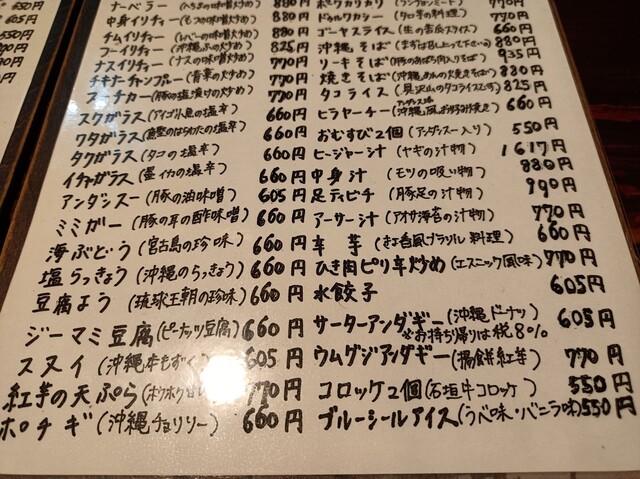 ナーベラー (へちまの味噌炒め) 880円
中身イリチャー (もつの味噌炒め) 880円
チムイリチャー (レバーの味噌炒め) 880円
フーイリチャー (沖縄ふの炒め) 825円
ナスイリチャー (ナスの味噌炒め) 770円
チキナーチャンプルー (青菜の炒め) 770円
スーチカー (豚の塩漬け炒め) 770円
スクガラス (アイゴ小魚の塩辛) 660円
ワタガラス (鰹のはらわたの塩辛) 660円
タクガラス (タコの塩辛) 660円
イチャガラス (墨イカの塩辛) 660円
アンダンスー (豚の油味噌) 605円
ミミガー (豚の耳の酢味噌) 660円
海ぶどう (宮古島の珍味) 660円
塩らっきょう (沖縄のらっきょう) 660円
豆腐よう (琉球王朝の珍味) 660円
ジーマミ豆腐 (ピーナッツ豆腐) 660円
スヌイ (沖縄本もずく) 605円
紅芋の天ぷら (ホクホク 770円
ポチギ (沖縄チョリソー) 660円
ポークカリカリ (ランチョンミート) 770円
ドゥルワカシー (タロ芋の料理) 770円
ゴーヤスライス (生の苦瓜スライス) 660円
沖縄そば (まずは召し上って下さい) 880円
ソーキそば (豚のあばら肉入りそば) 935円
焼きそば (沖縄めんの焼きそば) 880円
タコライス (具沢山のタコライスです) 825円
ヒラヤーチー (沖縄風お好み焼き) 660円
おむすび2個 (アンダンスー入り) 550円
ヒージャー汁 (ヤギの汁物) 1617円
中身汁 (モツの吸い物) 880円
足ティビチ (豚足の汁物) 990円
アーサー汁 (アオサ海苔の汁物) 770円
辛芋 (きよ香風ブラジル料理) 660円
ひき肉ピリ辛炒め (エスニック風味) 770円
水餃子 605円
サーターアンダギー (沖縄ドーナッツ) 605円
※お持ち帰りは税8%
ウムクジアンダギー (揚餅紅芋) 770円
コロッケ2個 (石垣牛コロッケ) 550円
ブルーシールアイス (うべ味・バニラ味) 550円